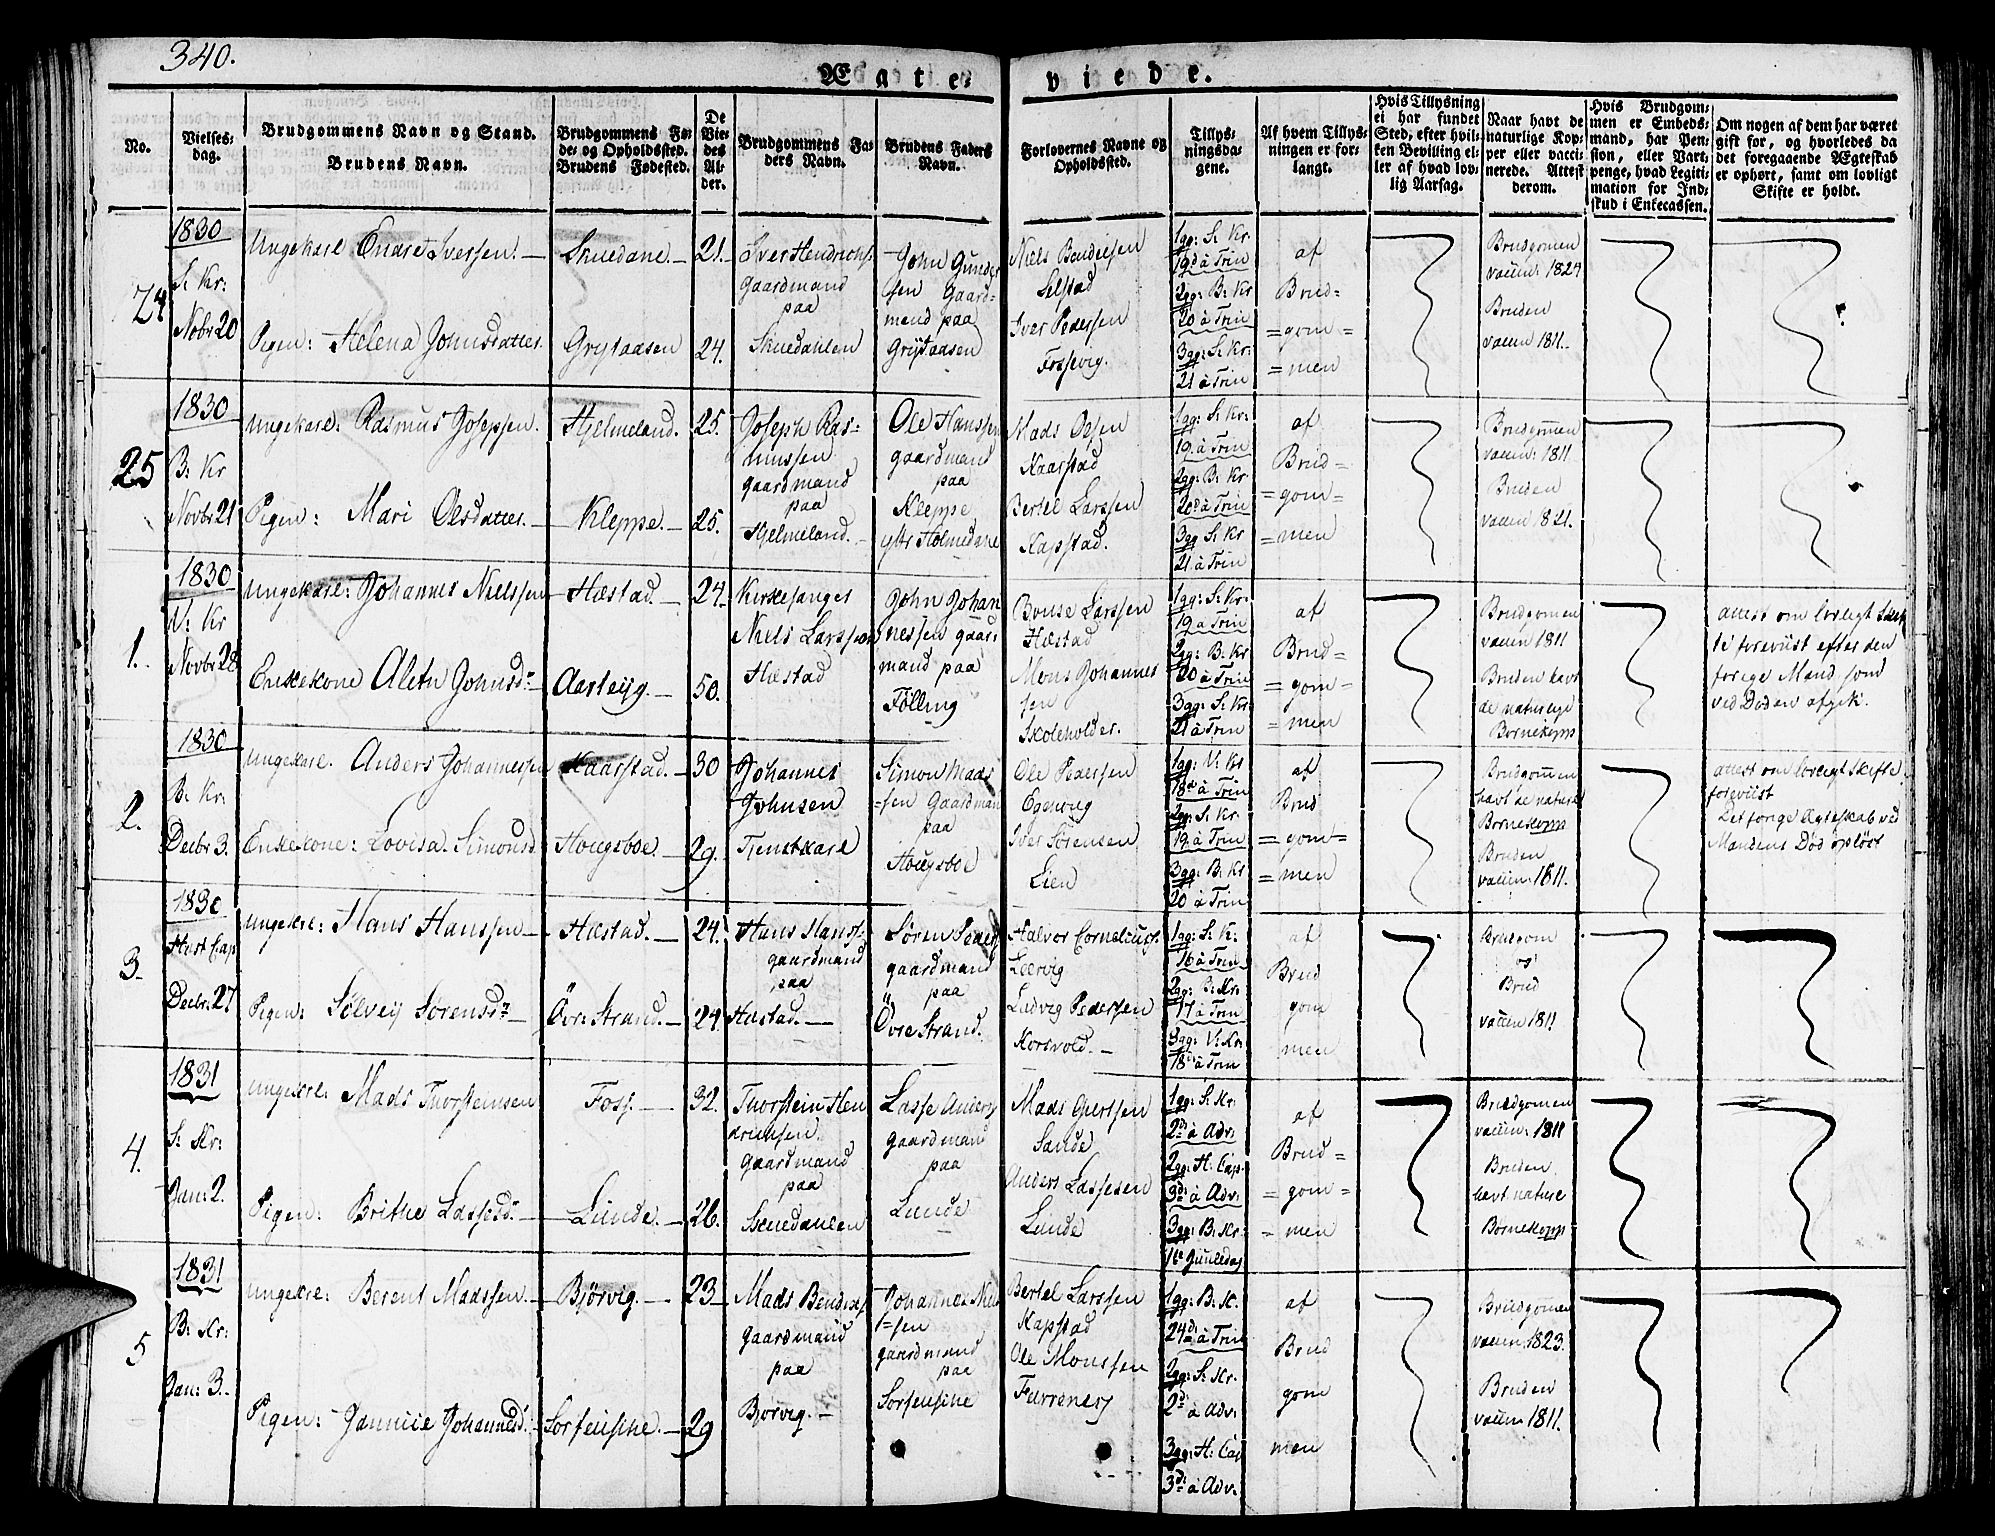 340.
Ægte-viede.
No.
Vielses-
dag.
Brudgommens Navn og Stand.
Brudens Navn.
Brudgommens Fø-
de- og Opholdssted.
Brudens Fødested.
De
Vie-
des
Al-
der.
Brudgommens Fa-
ders Navn.
Brudens Faders
Navn.
Forlovernes Navne og
Opholdssted.
Tillys-
ningsda-
gene.
Af hvem Tillys-
ningen er for-
langt.
Hvis Tillysning
ei har fundet
Sted, efter hvil-
ken Bevilling el-
ler af hvad lov-
lig Aarsag.
Naar havt de
naturlige Kop-
per eller vacci-
nerede. Attest
derom.
Hvis Brudgom-
men er Embeds-
mand, har Pen-
sion, eller Vart-
penge, hvad Legiti-
mation for Ind-
skud i Enkecassen.
Om nogen af dem har været
gift før, og hvorledes da
det foregaaende Ægteskab
er ophørt, samt om lovligt
Skifte er holdt.
24
1830
S: Kr:
Nobr 20
Ungekarl Endre Iversen.
Pigen: Helena Johnsdatter
Skuedane
Grytaasen
21.
24.
Iver Hendrichs.
Gaardmand
paa
Skuedahlen
John Gunder
sen Gaard-
mand paa
Grytaasen
Niels Bendixsen
Selstad
Iver Pedersen
Fossevig.
1gg: S: Kr
19d à Trin
2gg: B: Kr
20 à Trin
3gg: S: Kr:
21 à Trin
af
Brud=
=gom=
=men
Brudgomen
vaccin: 1824
Bruden
vaccin 1811.
25
1830
B: Kr
Novbr 21
Ungekarl: Rasmus Josepsen.
Pigen: Mari Olsdatter.
Hjelmeland.
Kleppe.
25.
25.
Joseph Ras-
mussen
gaardmand
paa
Hjelmeland.
Ole Hanssen
gaardmand
paa
Kleppe
ytre Holmedane
Mads Olsen
Kaarstad
Bertel Larssen
Kapstad.
1gg: S: Kr:
19. à Trin
2gg: B: Kr
20d à Trin
3gg S: Kr
21. à Trin
af
Brud=
=gom=
=men
Brudgomen
vaccin: 1811
Bruden
vaccin 1821.
1.
1830
V: Kr
Novbr 28
Ungekarl: Johannes Nielssen
Enkekone Aletu Johnsdr
Hæstad.
Aarleyg.
24.
50.
Kirkesanger
Niels Larssen
Hæstad
John Johan
nessen gaar-
mand paa
Følling
Bouse Larssen
Hæstad
Mons Johannes
sen
Skoleholder.
1gg: S: Kr:
19 à Trin
2gg: B: Kr
20 à Trin
3gg: S: Kr:
21 à Trin
af
Brud=
=gom=
=men
Brudgomen
vaccin 1811
Bruden havt
de naturlige
Bornekopp
attest om lovligt Skif
te foreviist efter den
forrige Mand som
ved Døden afgik.
2.
1830
B: Kr:
Decbr 3.
Ungekarl. Anders Johannessen
Enkekone: Lovisa Simonsd
Kaarstad.
Hougsboe.
30
29.
Johannes
Johnsen
Tienstkarl
Simon Mads
=sen Gaardman
paa
Hougsboe
Ole Pedersen
Egeroug
Iver Sørensen
Lien
1gg: V: Kr
18d à Trin
2gg: S: Kr
19. à Trin
3gg: B: Kr
20 à Trin
af
Brud
=gom=
=men
Brudgomen
havt de naturl
Bornekopp
Bruden
vaccin: 1811.
attest om lovligt Skifte
foreviist
Det forige Ægteskab ved
Mandens Død opløst
3.
1830
Decbr. 27
Ungekrl: Hans Hanssen
Pigen: Sølvey Sørensdr
Hæstad.
Øvre Strand.
24.
24
Hans Hanss.
gaardmand
paa
Hæstad.
Søren Peders
gaardmand
paa
Øvre Strand.
Halvor Corneliuss.
Leervig
Ludvig Pedersen
Korsvold.
1gg: S: K:
16 à Trin
2gg: B: Kr:
17 à Trin
3gg: V: Kr:
18d à Trin
af
Brud
gom
men
Brudgom
og
Brud
vaccin 1811
4.
1831
S: Kr:
Jan: 2.
Ungekrl: Mads Thorsteinsen
Pigen: Brithe Lassesdr
Foss.
Lunde.
32.
26.
Thorstein Hen
drichsen.
gaardmand
paa
Skuedahlen
Lasse Anders
gaardmand
paa
Lunde
Mads Giertsen
Sande
Anders Lassesen
Lunde
1gg: S: Kr.
2d à Adv:
2gg: H: Cap.
3d à Adv:
3gg: B: Kr.
1te Juuledag
af
Brud=
=gom=
=men
Brudgomen
vaccin: 1811
Bruden
havt naturl
Børnekopp
5
1831
B: Kr:
Jan: 3.
Ungekrl: Berent Madssen.
Pigen: Jannicie Johannesd.
Bjørvig.
Sørfeuske.
23
29
Mads Bendixs
Gaardmand
paa
Bjørvig.
Johannes Niel
=sen
gaardmand
paa
Sørfeuske
Bertel Larssen
Kapstad
Ole Monssen
Furrenes
1gg: B: K.
24d à Trin
2gg: S: Kr.
2d à Adv:
3gg: H: Cap
3d à Adv:
af
Brud
gom
men
Brudgomen
vaccin. 1823.
Bruden
vaccin: 1811.